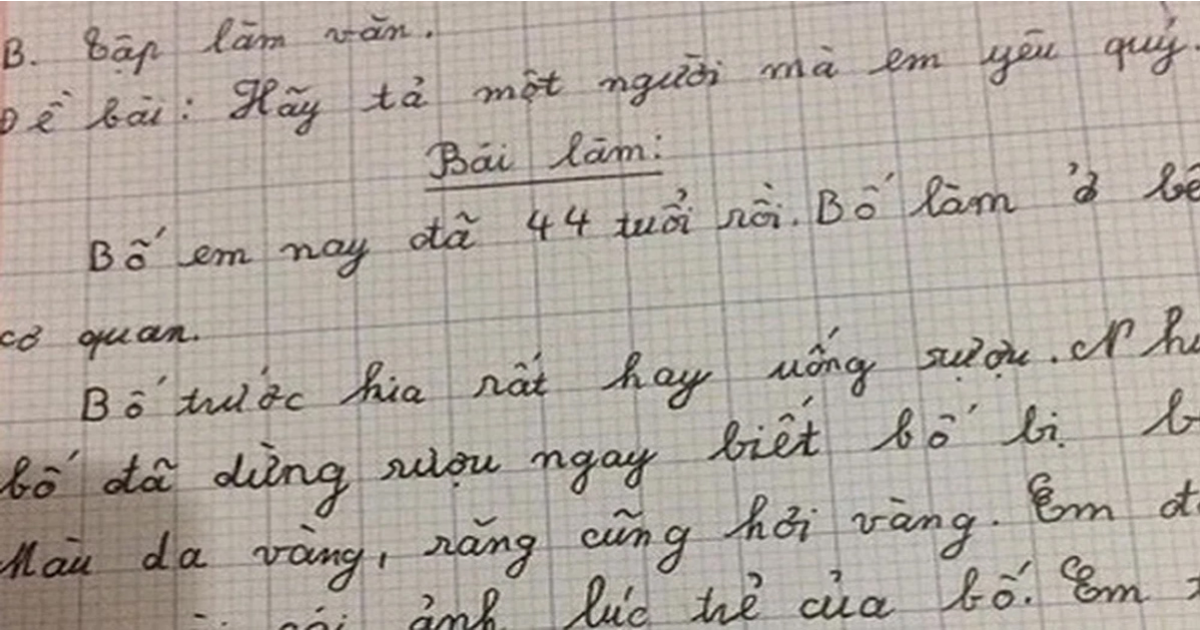 B. Tập làm văn.
Đề bài: Hãy tả một người mà em yêu quý.
Bài làm:
Bố em nay đã 44 tuổi rồi. Bố làm ở
cơ quan.
Bố trước kia rất hay uống rượu.
bố đã dừng rượu ngay biết bố bị
Màu da vàng, răng cũng hơi vàng. Em
ảnh lúc trẻ của bố. Em